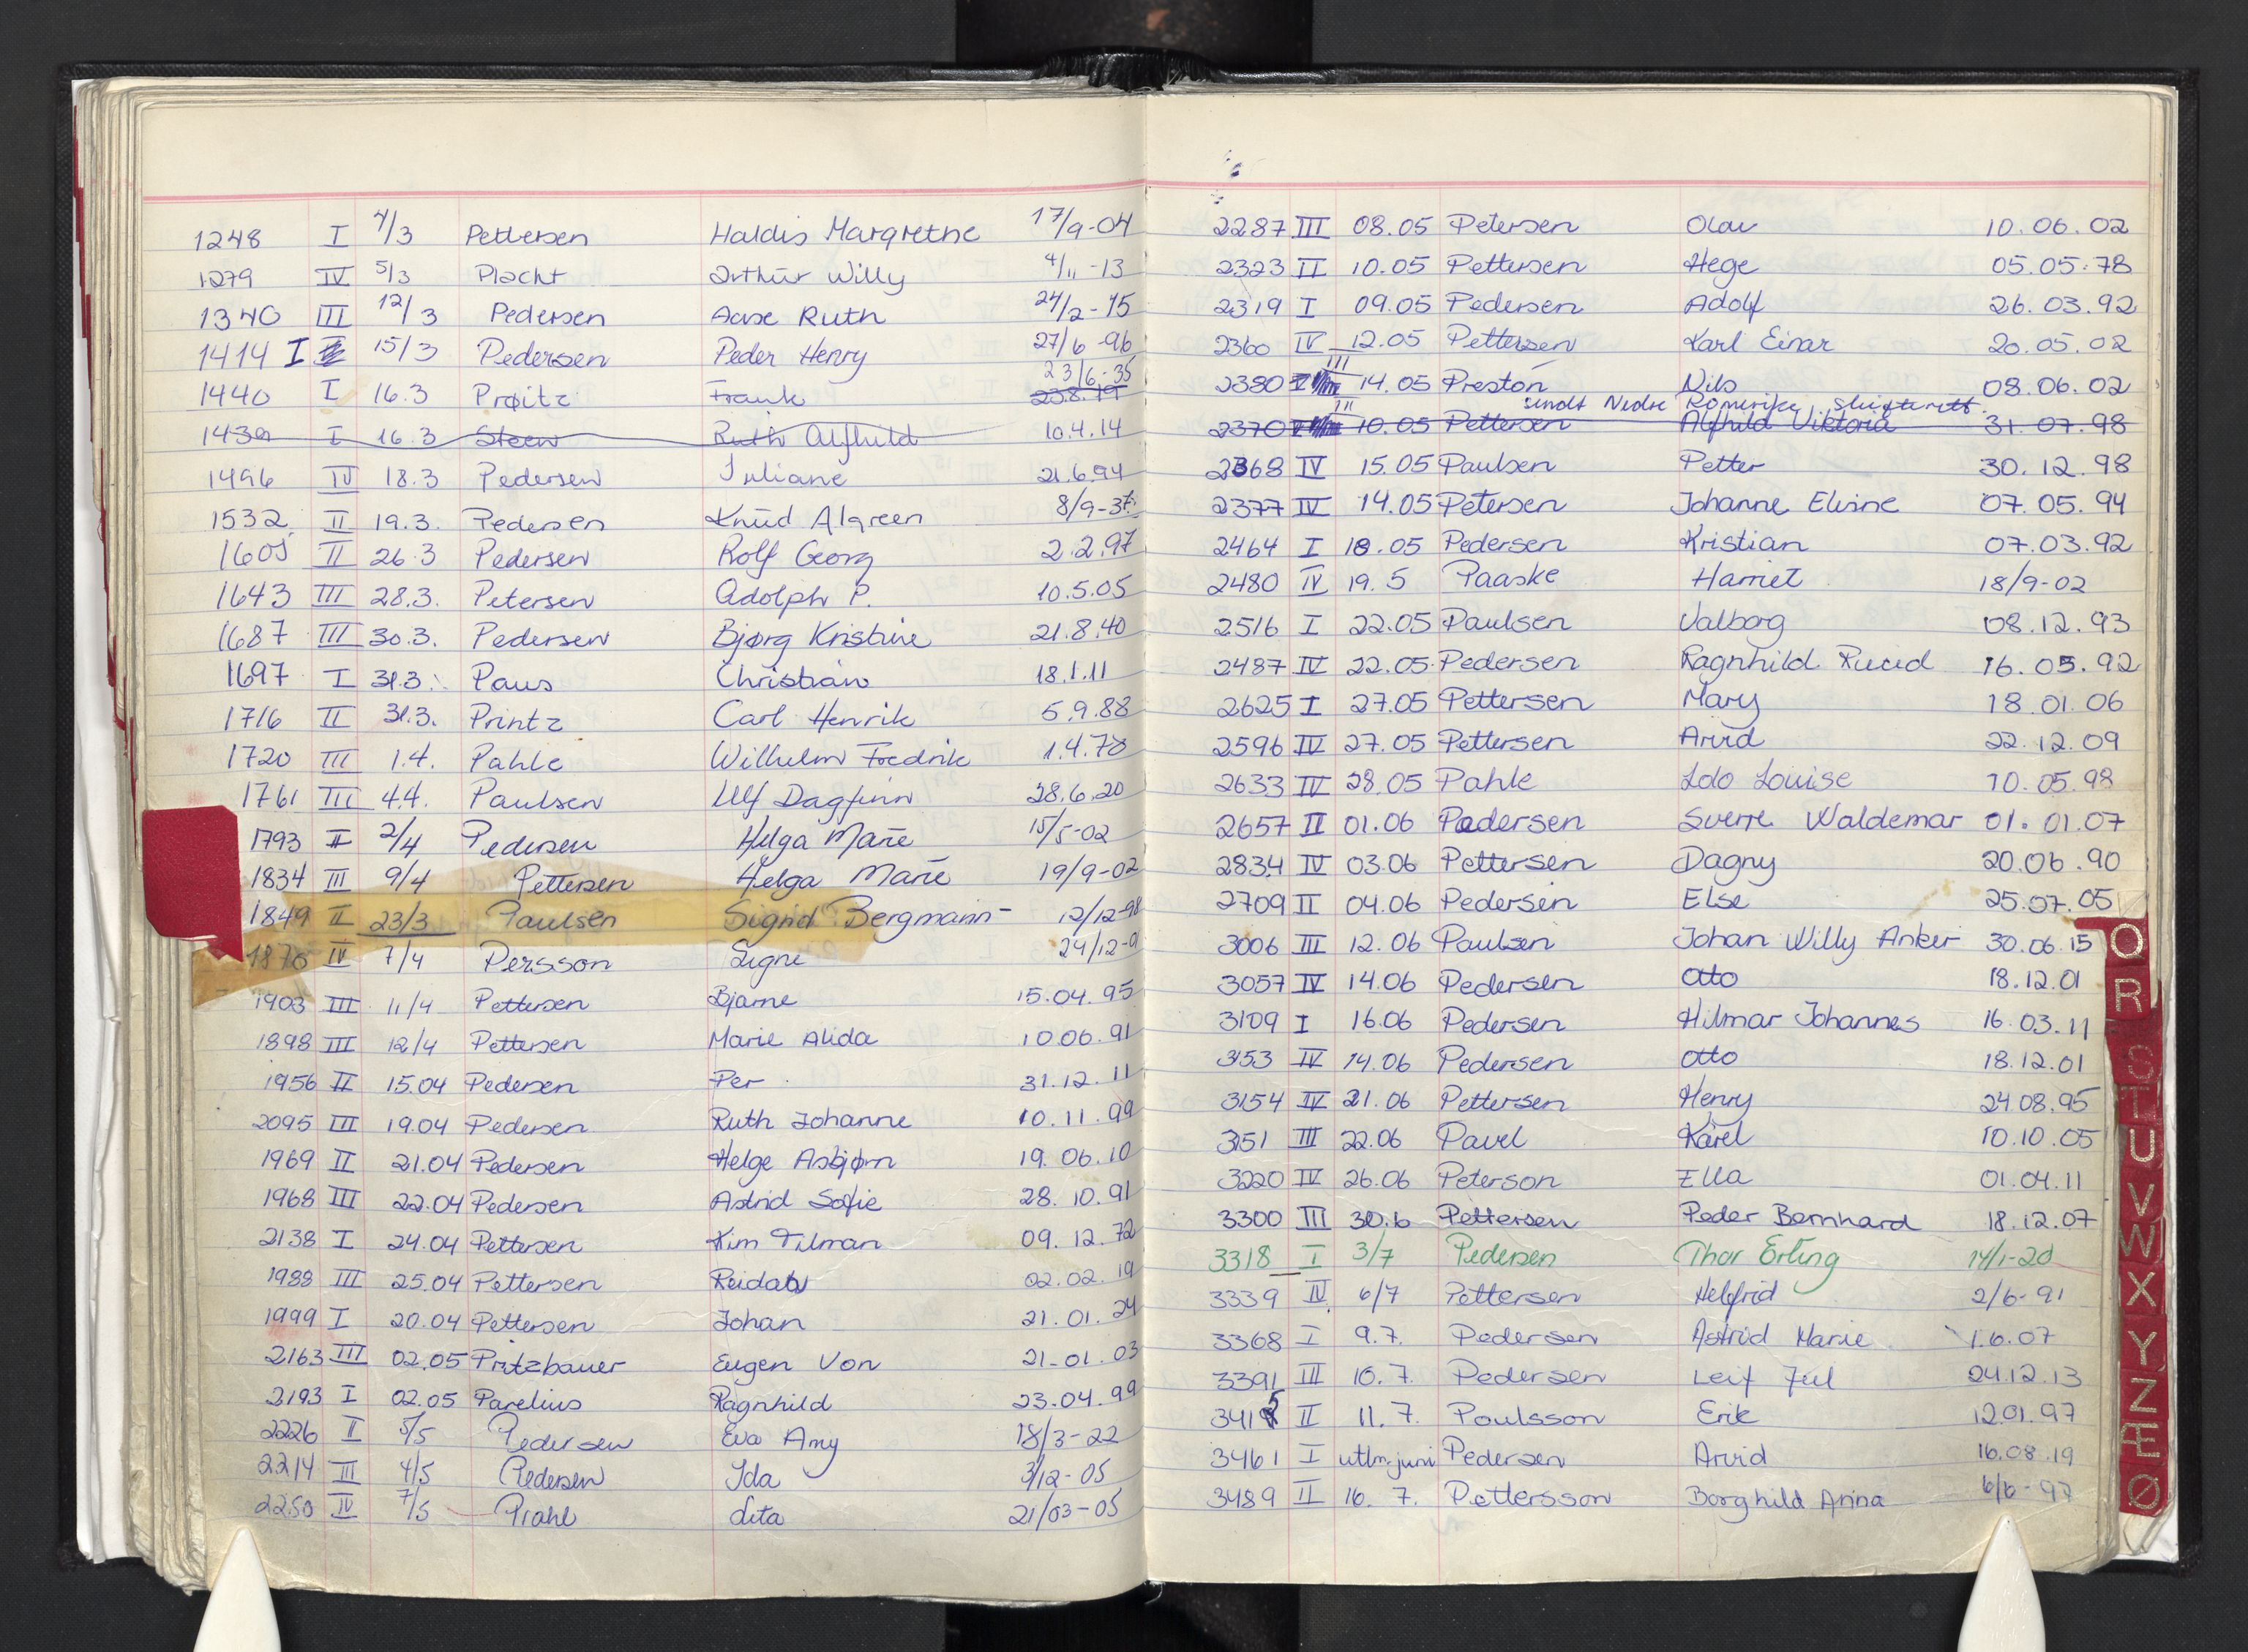 1248 I 4/3 Pettersen Haldis Margrethe 17/9-04
1279 IV 5/3 Placht Arthur Willy 4/11-13
1340 III 12/3 Pedersen Aase Ruth 24/2-15
1414 I 15/3 Pedersen Peder Henry 27/6-96
1440 I 16.3 Prøitz Frank 23/6-35
23.8.19
1439 I 16.3 Steen Ruth Alfhild 10.4.14
1496 IV 18.3 Pedersen Juliane 21.6.94
1532 II 19.3. Pedersen Knud Algreen 8/9-37
1605 II 26.3 Pedersen Rolf Georg 2.2.97
1643 III 28.3. Petersen Adolph P. 10.5.05
1687 III 30.3. Pedersen Bjørg Kristine 21.8.40
1697 I 31.3. Paus Christian 18.1.11
1716 II 31.3. Printz Carl Henrik 5.9.88
1720 III 1.4. Pahle Wilhelm Fredrik 1.4.78
1761 III 4.4. Paulsen Ulf Dagfinn 28.6.20
1793 II 2/4 Pedersen Helga Marie 15/5-02
1834 III 9/4 Pettersen Helga Marie 19/9-02
1849 II 23/3 Paulsen Sigrid Bergmann- 12/12-98
1876 IV 7/4 Persson Signe 24/12-0
1903 III 11/4 Pettersen Bjarne 15.04.95
1898 III 12/4 Pettersen Marie Alida 10.06.91
1956 II 15.04 Pedersen Per 31.12.11
2095 III 19.04 Pedersen Ruth Johanne 10.11.99
1969 II 21.04 Pedersen Helge Asbjørn 19.06.10
1968 III 22.04 Pedersen Astrid Sofie 28.10.91
2138 I 24.04 Pettersen Kim Tilman 09.12.72
1988 III 25.04 Pettersen Reidar 02.02.19
1999 I 20.04 Pettersen Johan 21.01.24
2163 III 02.05 Pritzbauer Eugen Von 21-01.03
2193 I 02.05 Parelius Ragnhild 23.04.99
2226 II 5/5 Pedersen Eva Amy 18/3-22
2214 III 4/5 Pedersen Ida 3/12-05
2250 IV 7/5 Prahl Lita 21/03-05
2287 III 08.05 Petersen Olav 10.06.02
2323 II 10.05 Pettersen Hege 05.05.78
2319 I 09.05 Pedersen Adolf 26.03.92
2360 IV 12.05 Pettersen Karl Einar 20.05.02
2380 III 14.05 Preston Nils 08.06.02
sendt Nedre Romerike skifterett
2370 III 10.05 Pettersen Alfhild Viktoria 31.07.98
2368 IV 15.05 Paulsen Petter 30.12.98
2377 IV 14.05 Petersen Johanne Elvine 07.05.94
2464 I 18.05 Pedersen Kristian 07.03.92
2480 IV 19.5 Paaske Harriet 18/9-02
2516 I 22.05 Paulsen Valborg 08.12.93
2487 IV 22.05 Pedersen Ragnhild Ruud 16.05.92
2625 I 27.05 Pettersen Mary 18.01.06
2596 IV 27.05 Pettersen Arvid 22.12.09
2633 IV 28.05 Pahle Lolo Louise 10.05.98
2657 II 01.06 Pedersen Sverre Waldemar 01.01.07
2834 IV 03.06 Pettersen Dagny 20.06.90
2709 II 04.06 Pedersen Else 25.07.05
3006 III 12.06 Paulsen Johan Willy Anker 30.06.15
3057 IV 14.06 Pedersen Otto 18.12.01
3109 I 16.06 Pedersen Hilmar Johannes 16.03.11
3153 IV 14.06 Pedersen Otto 18.12.01
3154 IV 21.06 Pettersen Henry 24.08.95
3151 III 22.06 Pavel Karel 10.10.05
3220 IV 26.06 Peterson Ella 01.04.11
3300 III 30.6 Pettersen Peder Bernhard 18.12.07
3318 I 3/7 Pedersen Thor Erling 14/1-20
3339 IV 6/7 Pettersen Helfrid 2/6-91
3368 I 9.7. Pedersen Astrid Marie 1.6.07
3391 III 10.7. Pedersen Leif Juul 24.12.13
3415 II 11.7. Poulsson Erik 12.01.97
3461 I utl.juni Pedersen Arvid 16.08.19
3489 II 16.7. Pettersson Borghild Anna 6/6-97
O
R
S
T
U
V
W
X
Y
Z
Æ
Ø